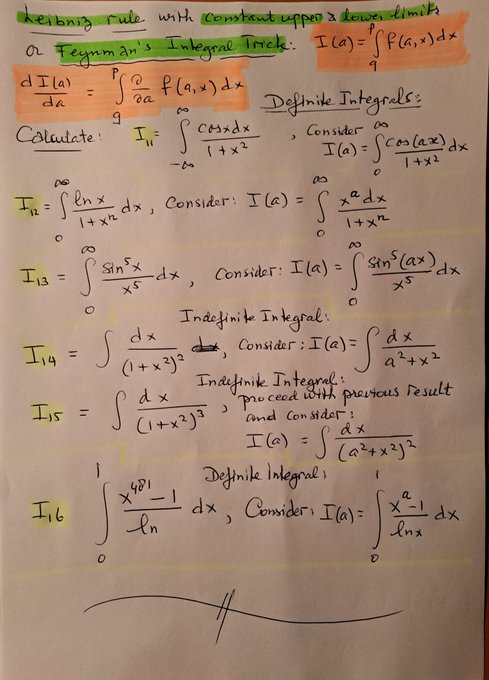 Leibniz rule with constant upper & lower limits
or Feynman's Integral Trick: I(a) = ∫_q^p f(a,x) dx
d I(a)/da = ∫_q^p ∂/∂a f(a,x) dx
Definite Integrals:
Calculate: I₁₁ = ∫_{-∞}^{∞} cosxdx/(1+x²) , Consider
I(a) = ∫_0^∞ cos(ax)/(1+x²) dx
I₁₂ = ∫_0^∞ ln x/(1+xⁿ) dx , Consider: I(a) = ∫_0^∞ x^a dx/(1+xⁿ)
I₁₃ = ∫_0^∞ sin⁵x/x⁵ dx , Consider: I(a) = ∫_0^∞ sin⁵(ax)/x⁵ dx
Indefinite Integral:
I₁₄ = ∫ dx/(1+x²)² , Consider: I(a) = ∫ dx/(a²+x²)
Indefinite Integral:
I₁₅ = ∫ dx/(1+x²)³ , proceed with previous result
and consider:
I(a) = ∫ dx/(a²+x²)²
Definite Integral:
I₁₆ ∫_0^1 (x⁴⁸¹-1)/ln dx , Consider: I(a) = ∫_0^1 (x^a-1)/lnx dx